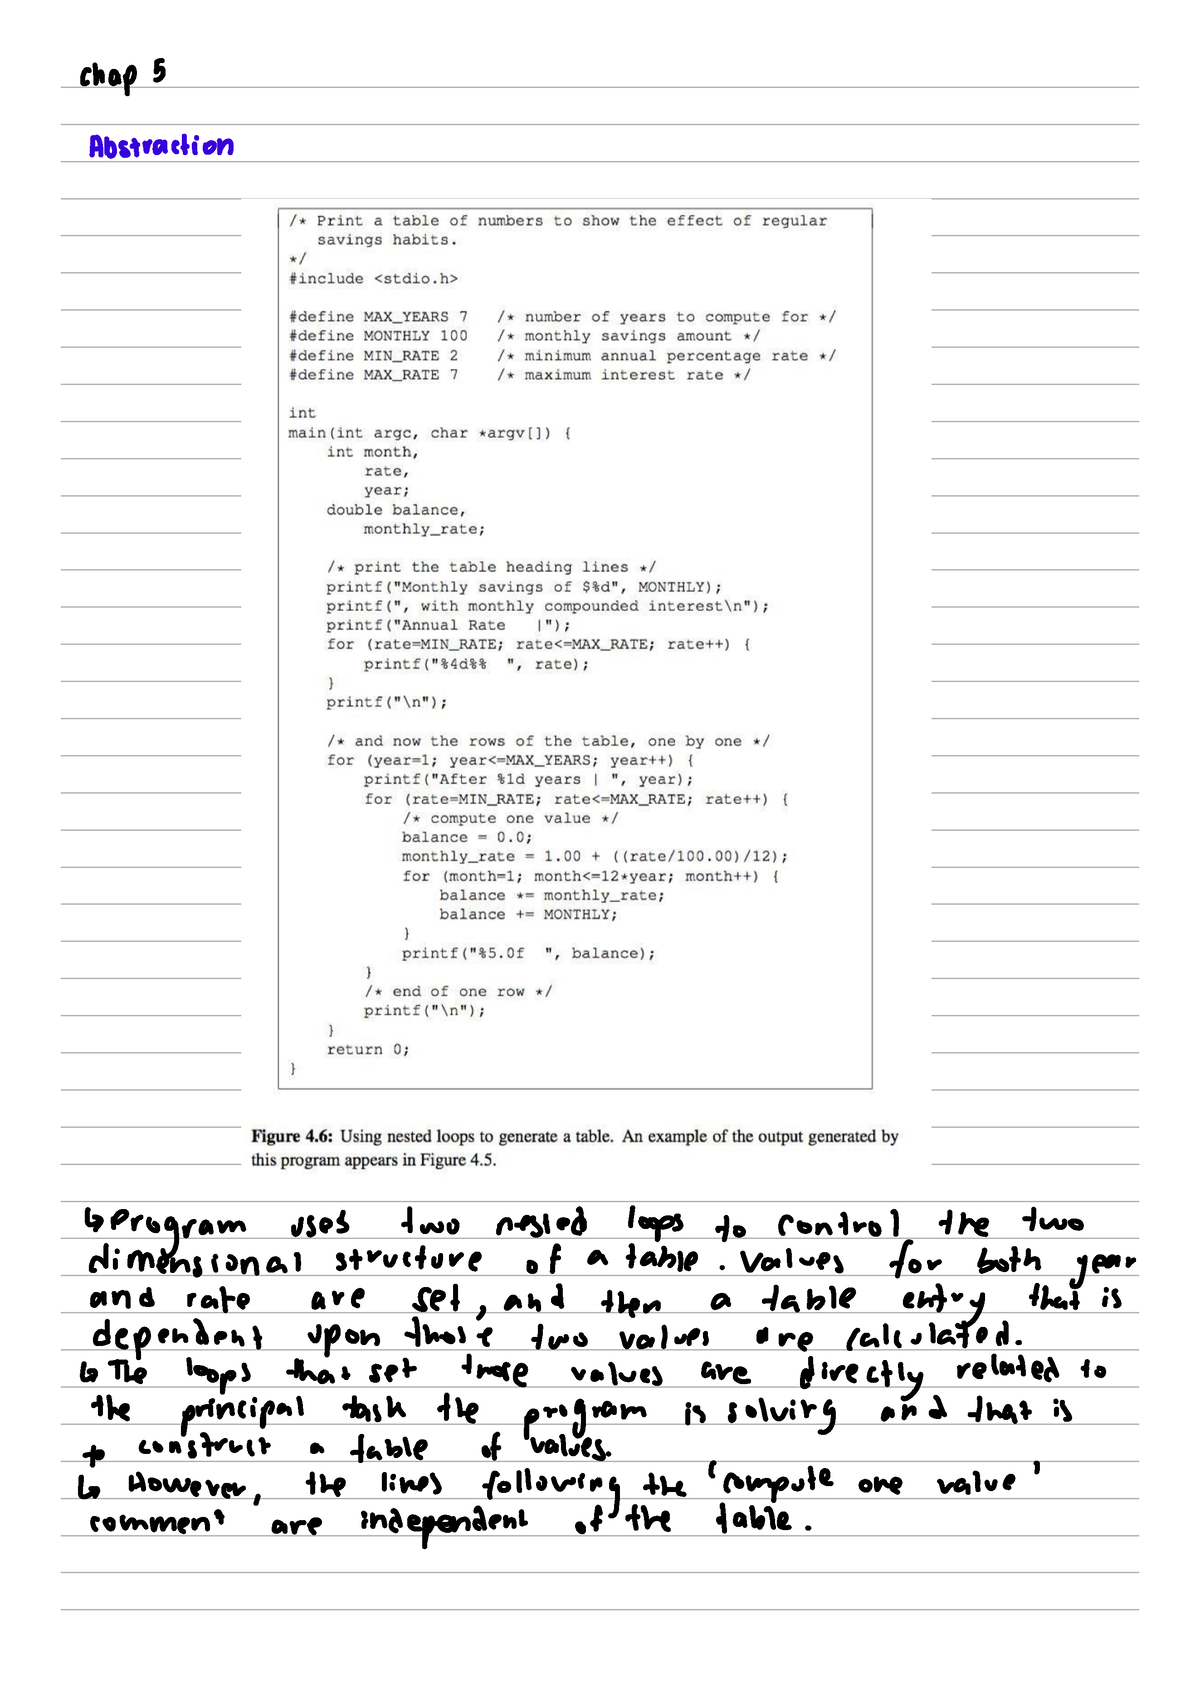 chap 5
Abstraction
/* Print a table of numbers to show the effect of regular
   savings habits.
*/
#include <stdio.h>

#define MAX_YEARS 7   /* number of years to compute for */
#define MONTHLY 100   /* monthly savings amount */
#define MIN_RATE 2    /* minimum annual percentage rate */
#define MAX_RATE 7    /* maximum interest rate */

int
main(int argc, char *argv[]) {
    int month,
        rate,
        year;
    double balance,
        monthly_rate;

    /* print the table heading lines */
    printf("Monthly savings of $%d", MONTHLY);
    printf(", with monthly compounded interest\n");
    printf("Annual Rate   |");
    for (rate=MIN_RATE; rate<=MAX_RATE; rate++) {
        printf("%4d%%  ", rate);
    }
    printf("\n");

    /* and now the rows of the table, one by one */
    for (year=1; year<=MAX_YEARS; year++) {
        printf("After %1d years | ", year);
        for (rate=MIN_RATE; rate<=MAX_RATE; rate++) {
            /* compute one value */
            balance = 0.0;
            monthly_rate = 1.00 + ((rate/100.00)/12);
            for (month=1; month<=12*year; month++) {
                balance *= monthly_rate;
                balance += MONTHLY;
            }
            printf("%5.0f  ", balance);
        }
        /* end of one row */
        printf("\n");
    }
    return 0;
}
Figure 4.6: Using nested loops to generate a table. An example of the output generated by
this program appears in Figure 4.5.
↳ Program uses two nested loops to control the two
dimensional structure of a table. Values for both year
and rate are set, and then a table entry that is
dependent upon those two values are calculated.
↳ The loops that set those values are directly related to
the principal task the program is solving and that is
to construct a table of values.
↳ However, the lines following the 'compute one value'
comment are independent of the table.